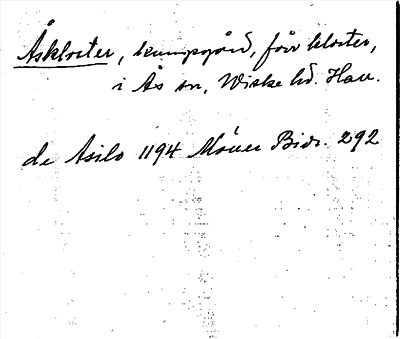 Åskloster, kungsgård, förr kloster,
i Ås sn, Wiske hd. Hall.
de Asilo 1194 Möller Bidr. 292